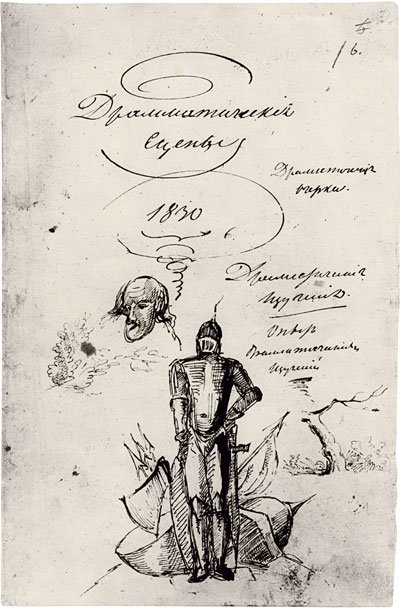 6.
Драмматическія
Сцены
1830
Драматическіе
очерки.
Драматическія
Изученія.
Опытъ
Драматическихъ
Изученій